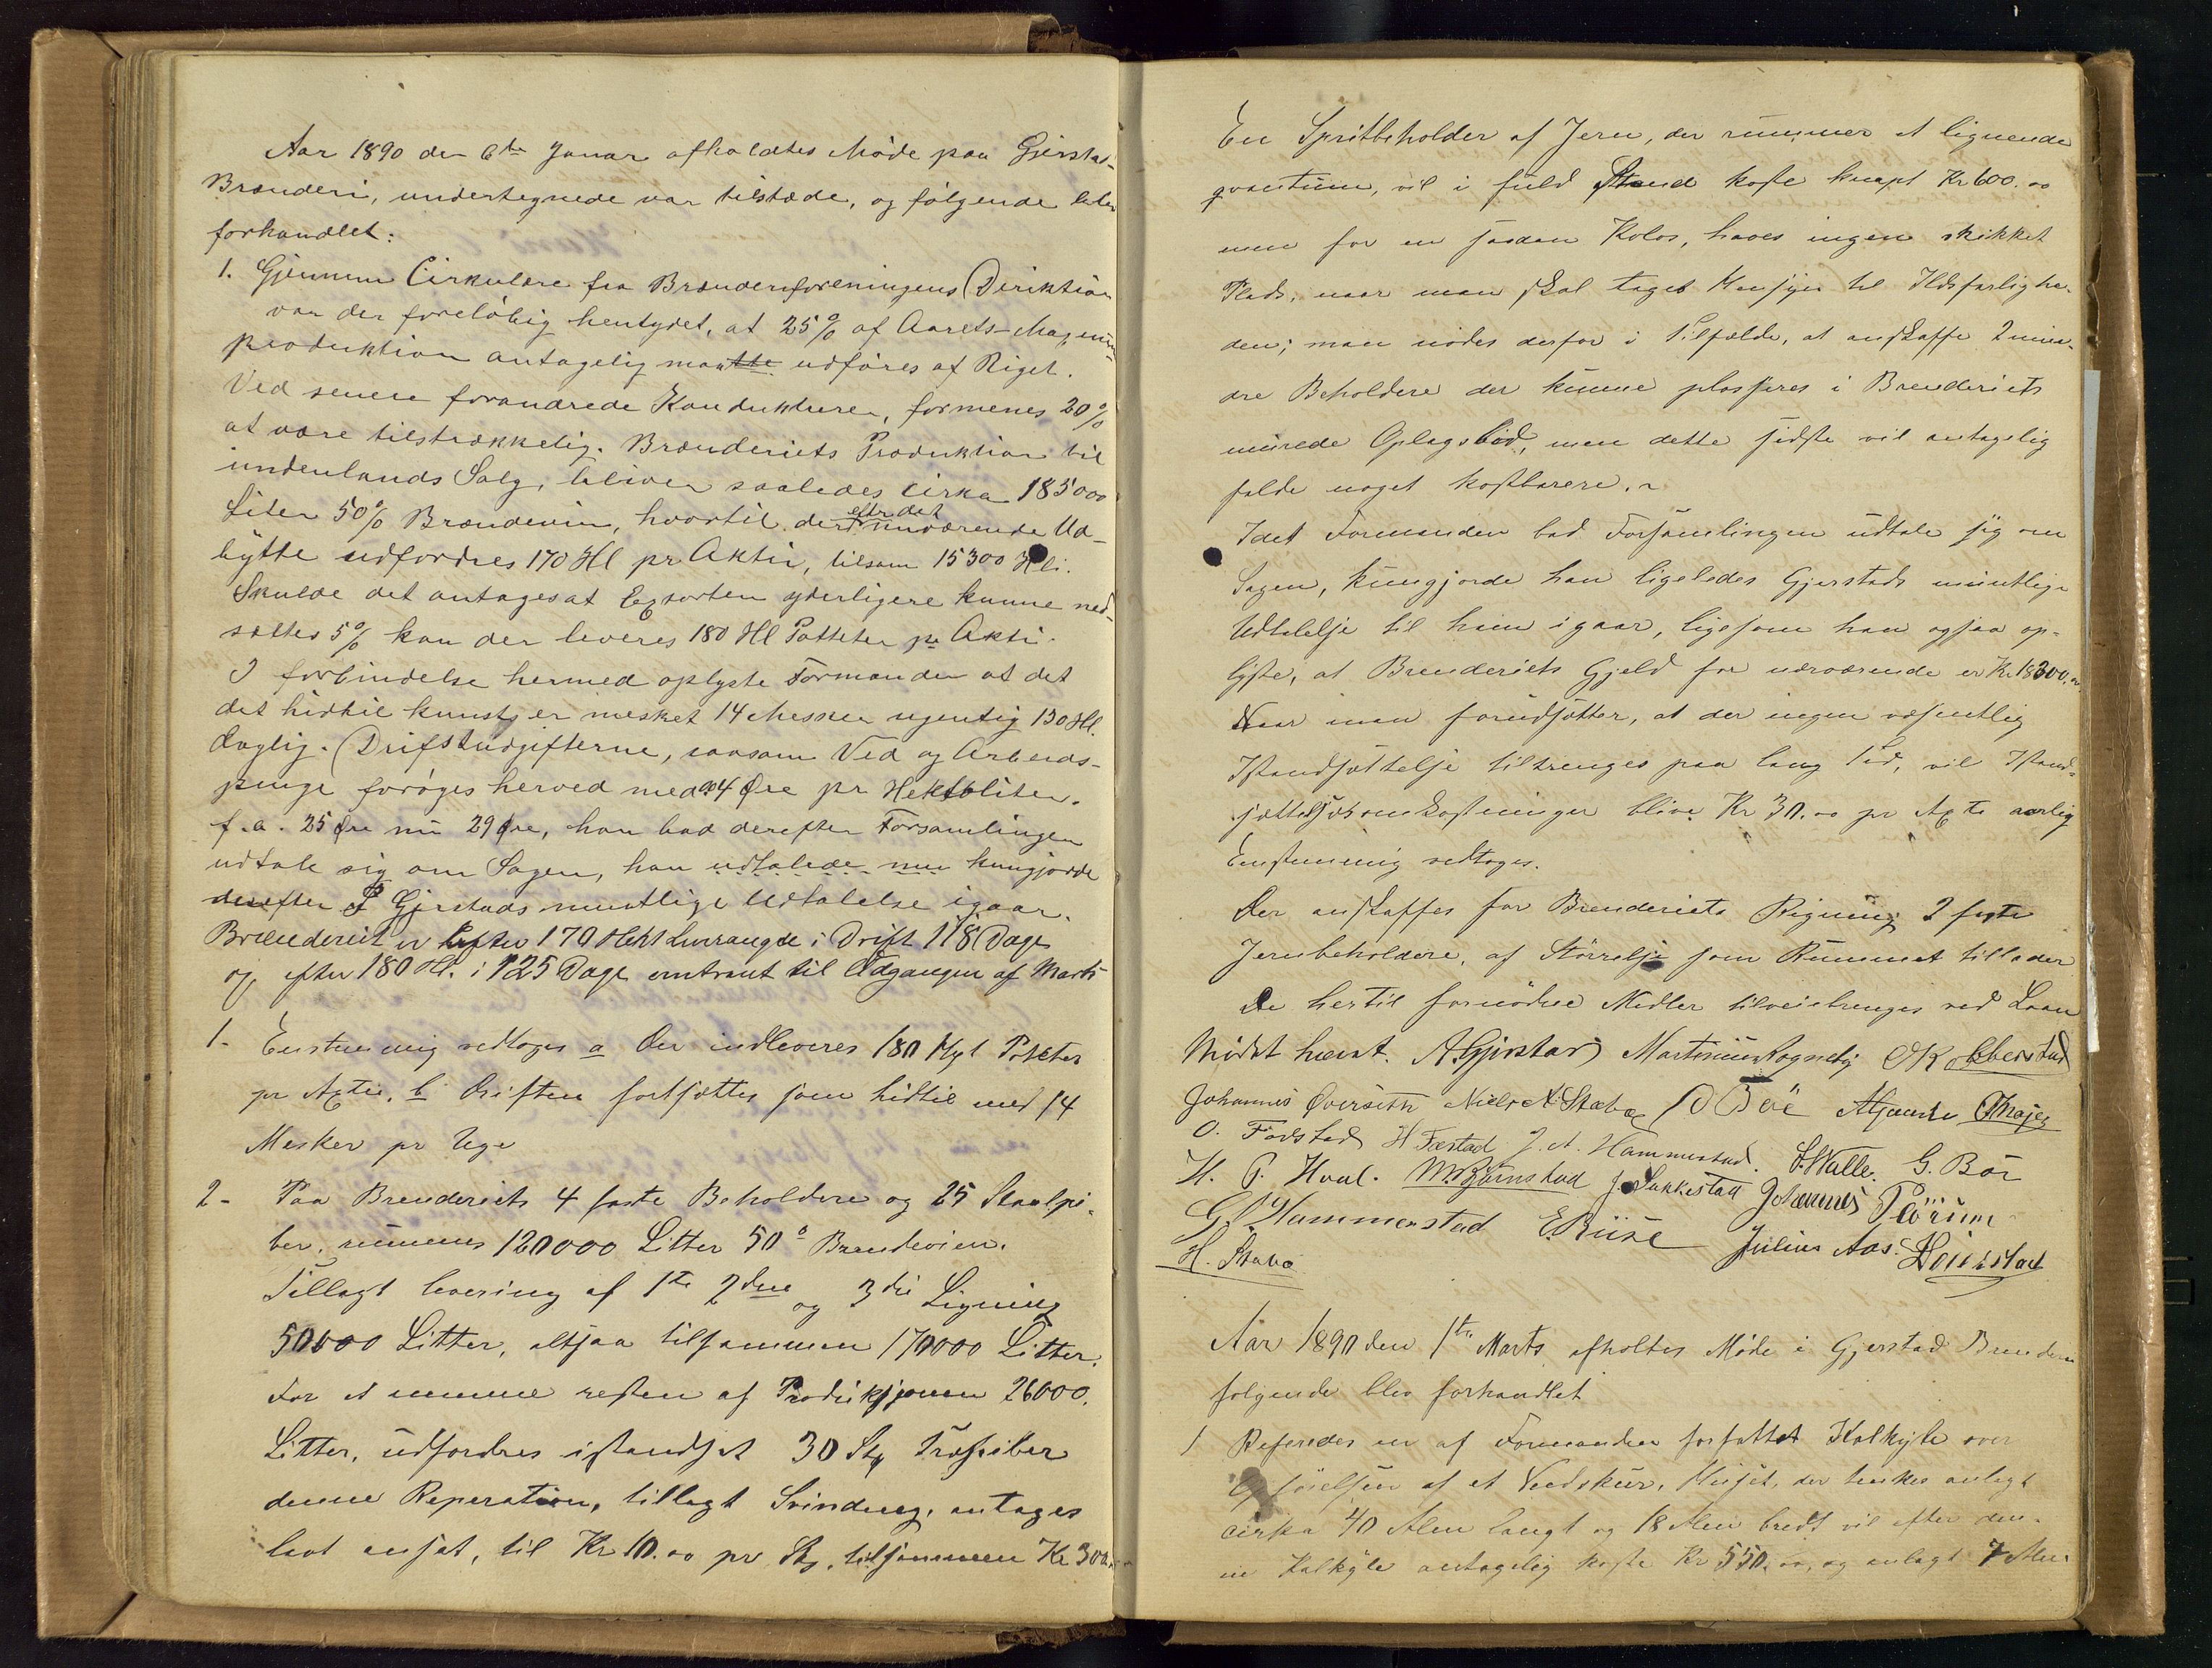 Aar 1890 den 6te Januar afholdtes Møde paa Gjerstad
Brænderi, undertegnede var tilstæde, og følgende blev
forhandlet:
1. Gjennem Cirkulære fra Brænderiforeningens Direktion
var der foreløbig hentydet, at 25% af Aarets
produktion antagelig maatte udføres af Riget.
Ved senere forandrede Konduktuer, formenes 20%
at være tilstrækkelig. Brænderiets Produktion til
indenlands Salg, bliver saaledes cirka 185000
Liter 50% Brændevin, hvortil der efter det nuværende Ud-
bytte udfordres 170 Hl pr Aktie, tilsam 15300 Hli.
Skulde det antages at Exporten yderligere kunne ned-
sættes 5% kan der leveres 180 Hl Potteter pr Akti.
I forbindelse hermed oplyste Formanden at det
det hidtil kunsts er mesket 14 Mesker ugentlig 130 Hl.
daglig. Driftsudgifterne, saasom Ved og Arbeids-
penge forøges herved med 4 Øre pr Hektoliter.
f. a. 25 Øre nu 29 Øre, han bad derefter Forsamlingen
udtale sig om Sagen, han udtalede nu kungjorde
derefter Gjerstads muntlige Udtalelse igaar.
Brænderiet er efter 170 Hekt Leverangde i Drift 118 Dage
og efter 180 Hl. i 125 Dage omtrent til Udgangen af Marts
1. Enstemmig vedtoges a Der indleveres 180 Hgl Poteter
pr Axtie, b Driften fortsættes som hidtil med 14
Mesker pr Uge
2. Paa Brenderiets 4 faste Beholdere og 25 Staalpi-
ber, rummes 120000 Litter 50° Brendevien.
Tillagt levering af 1te 2den og 3die Ligning
50000 Litter, altsaa tilsammen 170000 Litter.
For at rumme resten af Produksjonen 26000.
Litter, udfordres istandsat 30 Stk Træpiber
denne Reperation, tillagt Svinding, antages
lavt ansat, til Kr 10.00 pr Stk. tilsammen Kr 300.
En Spritbeholder af Jern, der rummer et lignende
qvantum, vil i fuld Stand koste knapt Kr 600.00
men for en saadan Kolos, haves ingen skikket
Plads, naar man skal taget Hensyn til Ildsfarlighe-
den; man nødes derfor i Tilfælde, at anskaffe 2 min-
dre Beholdere der kunne plasseres i Brenderiets
murede Oplagsbod, men dette sidste vil antagelig
falde noget kostbarere.
Idet Formanden bad Forsamlingen udtale sig om
Sagen, kungjorde han ligeledes Gjerstads muntlige
Udtalelse til ham igaar, ligesom han ogsaa op-
lyste, at Brenderiets Gjeld for nærværende er Kr 18300.00
Naar man forudsætter, at der ingen væsentlig
Istandsættelse tiltrenges paa lang Tid, vil Istand-
sættelsesomkostninger blive Kr 30.00 pr Axtie aarlig
Enstemmig vedtoges.
Der anskaffes for Brenderiets Regning 2 faste
Jernbeholdere, af Størrelse som Rummet tillader
De hertil fornødne Midler tilveiebringes ved Laan
Mødet hævet. A Gjerstad Martinius Sogneby OK Obberstad
Johannes Øverseth Niels A. Stabo O Bøe
O. Fodstad H Fæstad J. A. Hammerstad. S. Walle. G. Bøe
H. P. Hval. M. Bjørnstad J. Sukkestad Johannes
G. Hammerstad E. Riise Julius Aas.
H. Stabo
Aar 1890 den 1te Marts afholtes Møde i Gjerstad Brenderi
følgende blev forhandlet
1 Referedes en af Formanden forfattet Kalkyle over
Opførelsen af et Vedskur. Huset, der tenkes anlagt
cirka 40 Alen langt og 18 Alen bredt vil efter den-
ne Kalkyle antagelig koste Kr 550.00, og anlagt 7 Alen